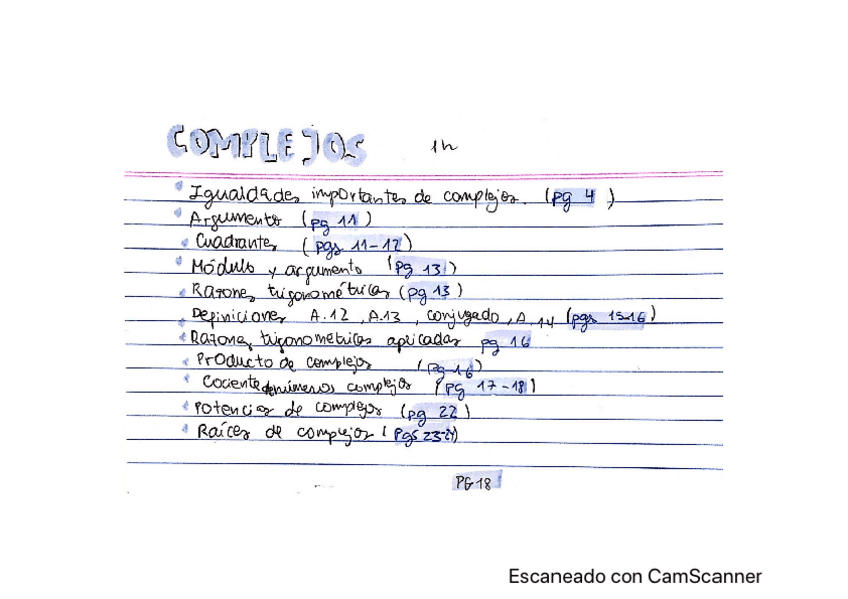 COMPLEJOS 1h
Igualdades importantes de complejos. (pg 4)
Argumento (pg 11)
Cuadrantes (pgs 11-12)
Módulo y argumento (pg 13)
Razones trigonométricas (pg 13)
Definiciones A.12, A.13, conjugado, A.14 (pgs 15-16)
Razones trigonométricas aplicadas pg 16
Producto de complejos (pg 16)
Cociente de números complejos (pg 17-18)
Potencias de complejos (pg 22)
Raíces de complejos (pgs 23-24)
PG 18
Escaneado con CamScanner